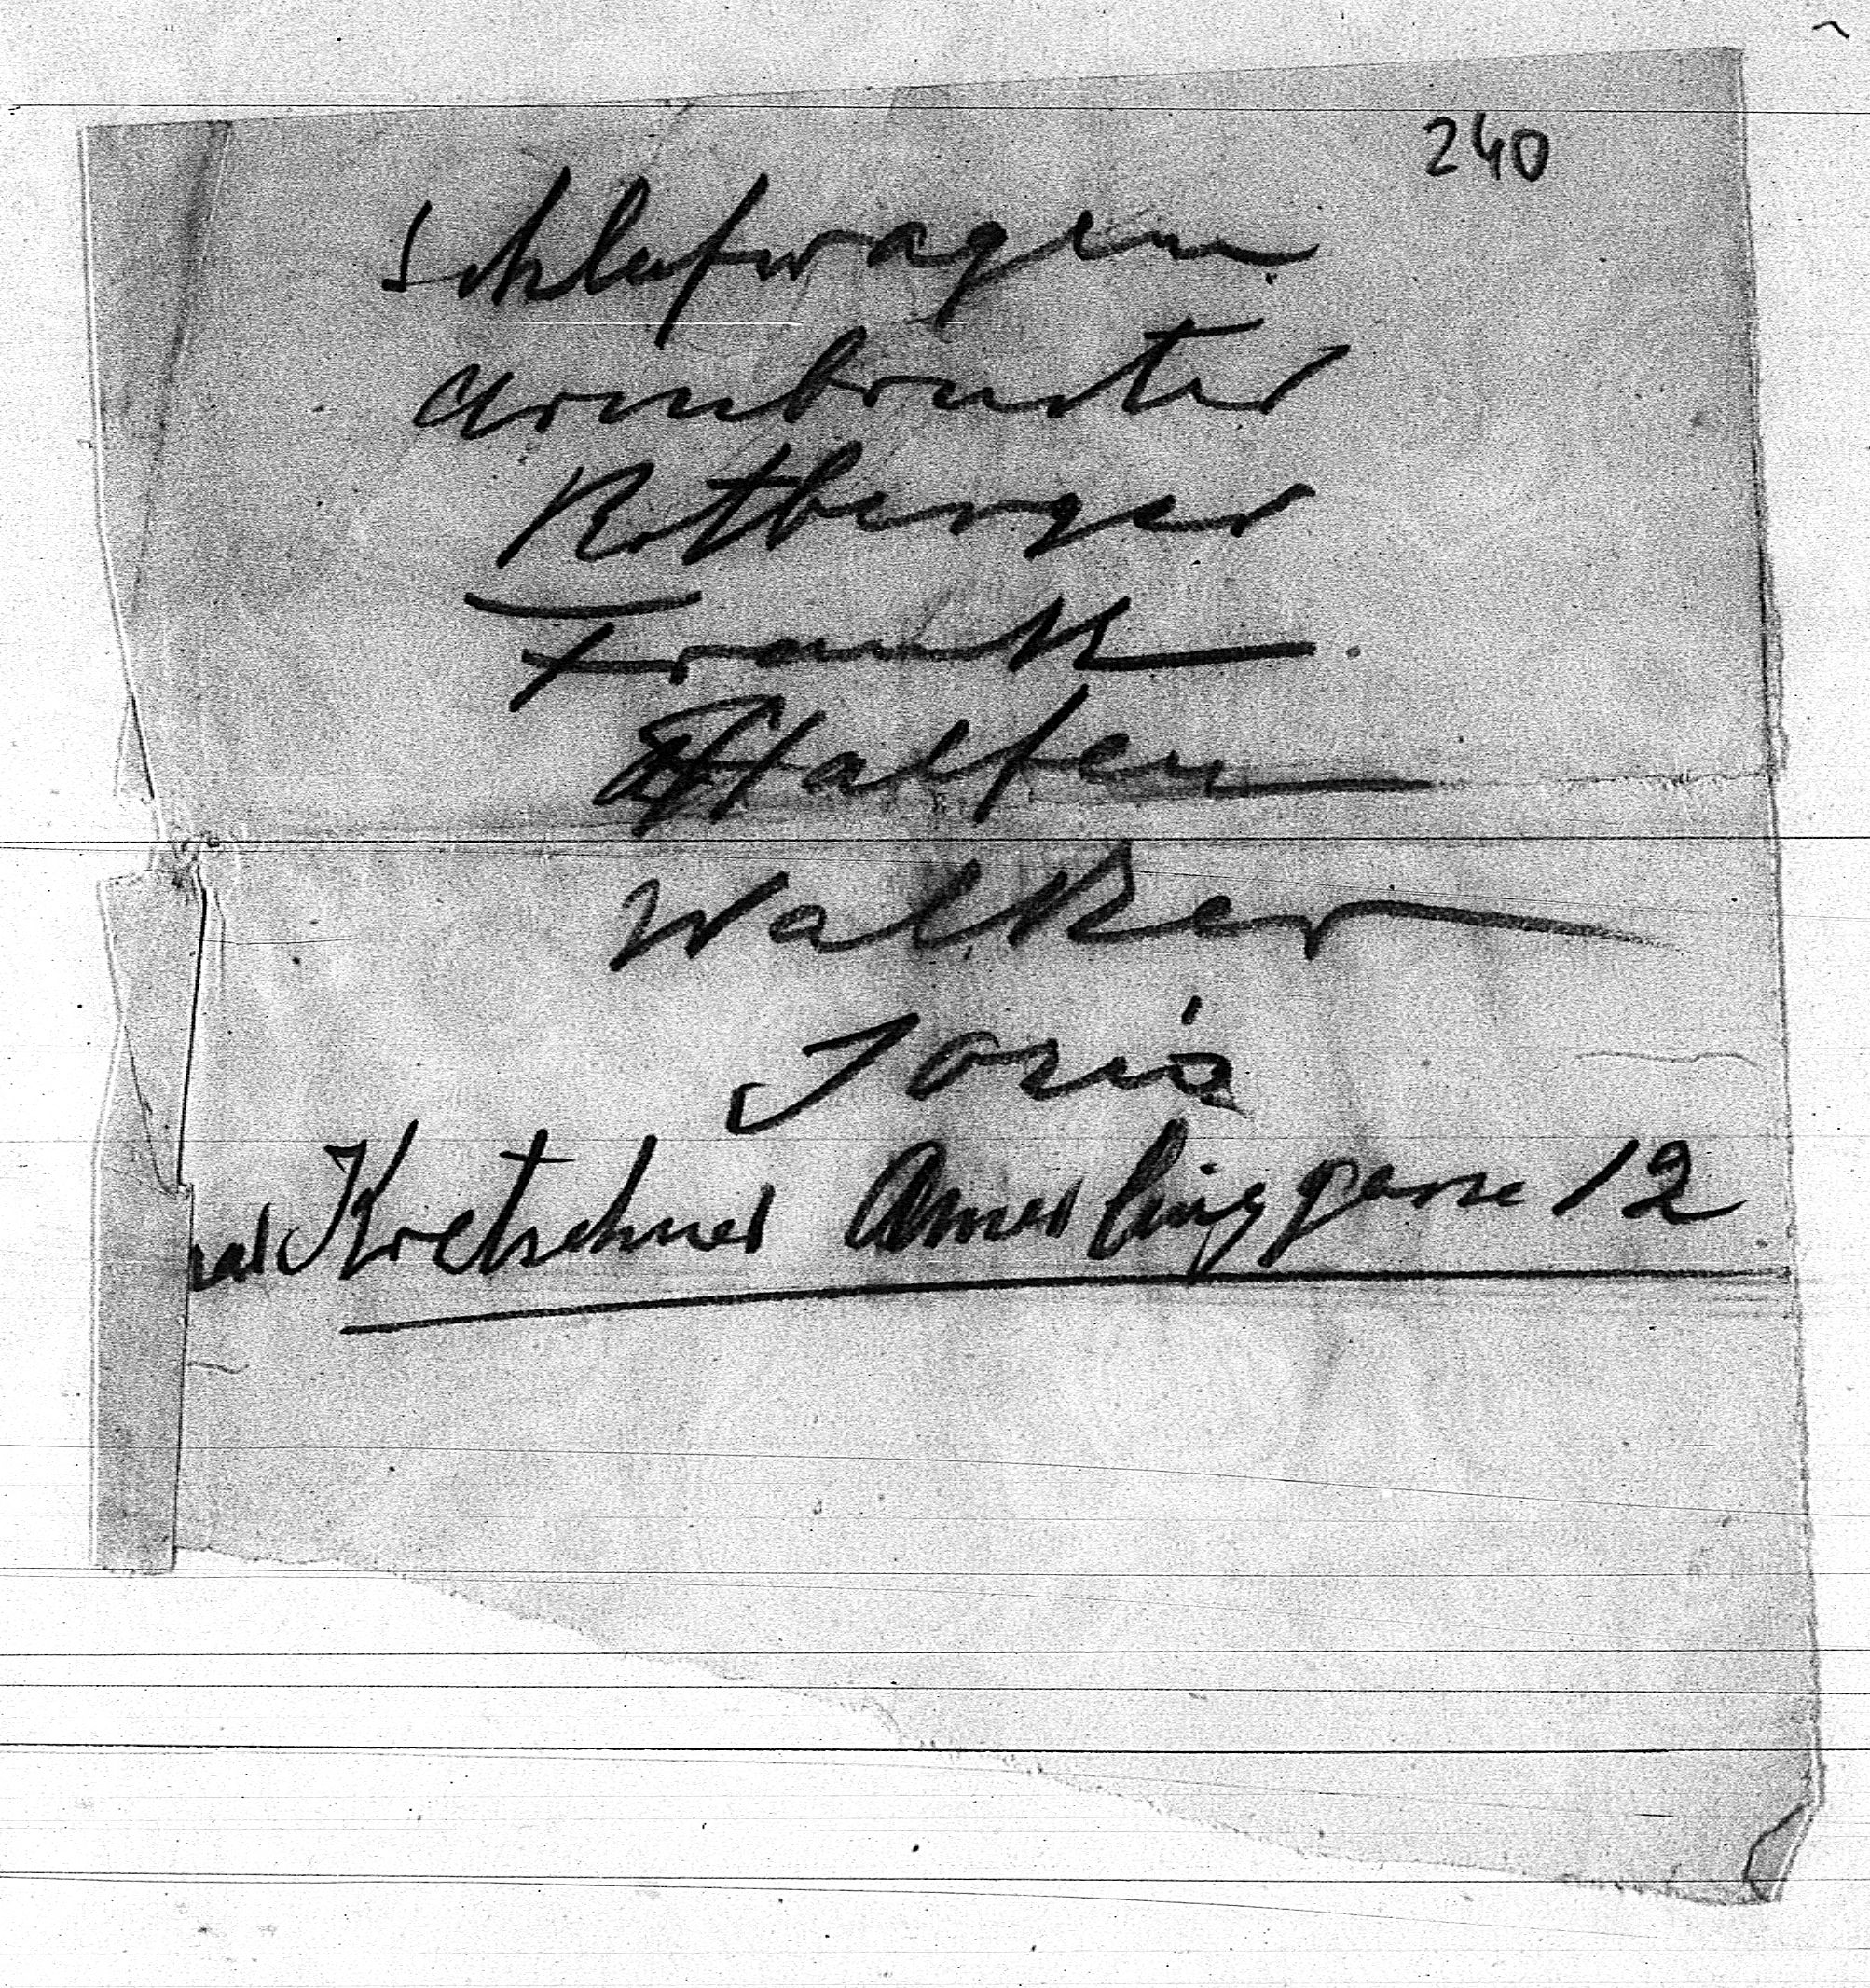 240
Schlafwagen
Armbruster
Rotberger
Frank
Halfen
Walker
Joris
Kretschmer Amerlinggasse 12